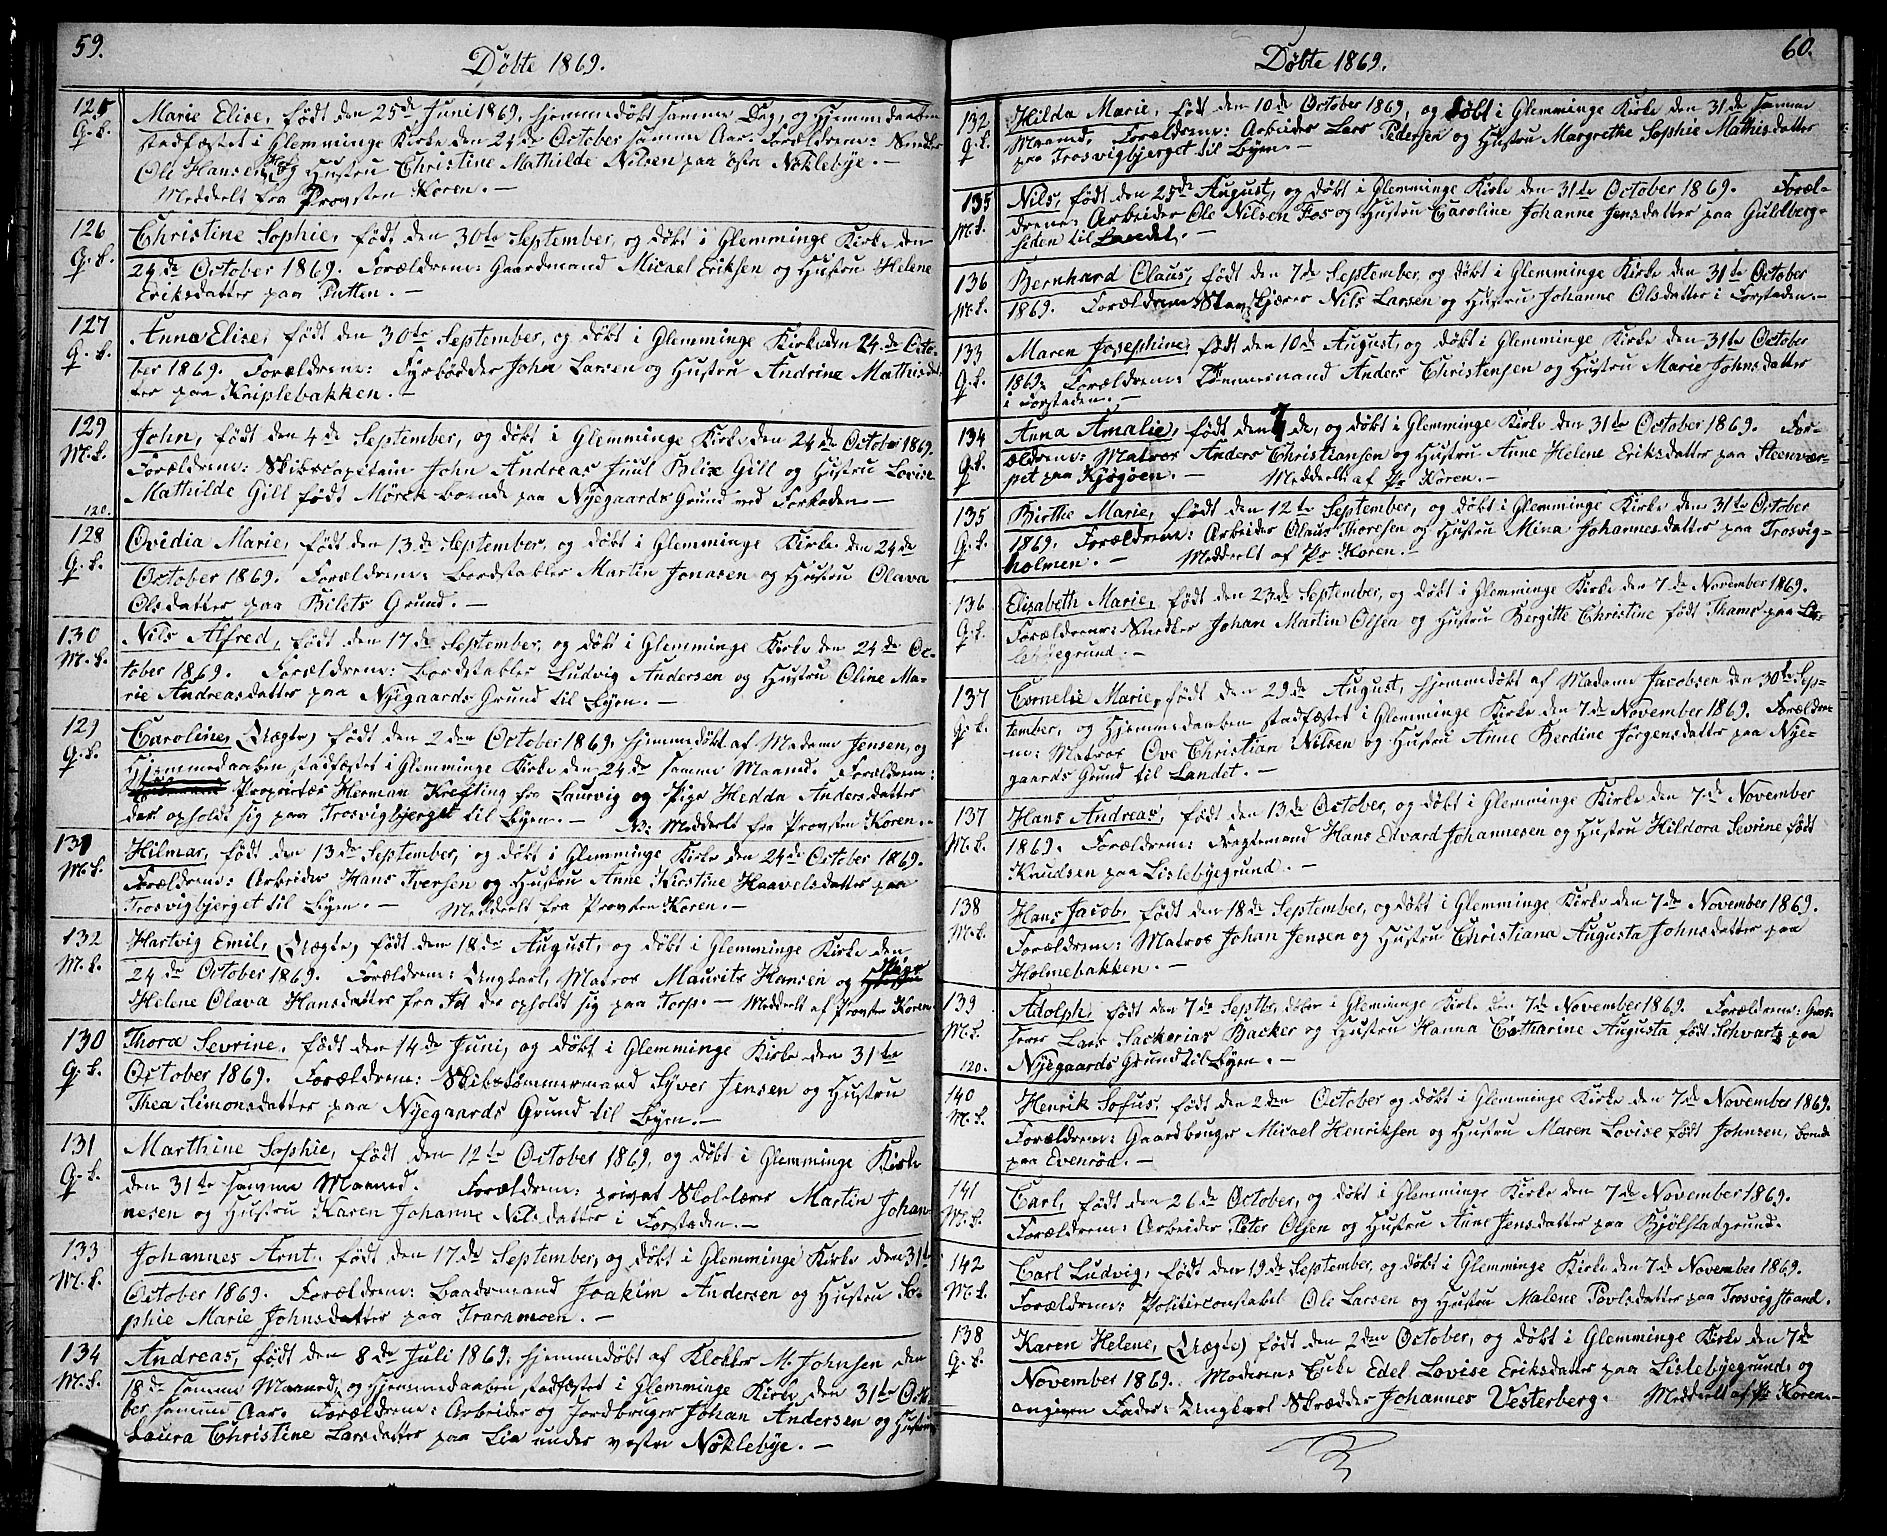 59.
Døbte 1869.
125
Q. k.
Marie Elise, født den 25de Juni 1869, hjemmedøbt samme Dag, og Hjemmedaaben
stadfæstet i Glemminge Kirke den 24de October samme Aar. Forældrene: Snedker
Ole Hansen og Hustru Christine Mathilde Nilsen paa østre Nøklebye. —
Meddelt fra Provsten Koren. —
126
Q. k.
Christine Sophie, født den 30te September, og døbt i Glemminge Kirke den
24de October 1869. Forældrene: Gaardmand Micael Eriksen og Hustru Helene
Eriksdatter paa Putten. —
127
Q. k.
Anna Elise, født den 30te September, og døbt i Glemminge Kirke den 24de Octo-
ber 1869. Forældrene: Fyrbøder John Larsen og Hustru Andrine Mathisdat-
ter paa Kniplebakken. —
129
M. k.
John, født den 4de September, og døbt i Glemminge Kirke den 24de October 1869.
Forældrene: Skibscapitain John Andreas Juul Blix Gill og Hustru Lovise
Mathilde Gill født Mörch boende paa Nyegaards Grund ved Forstaden —
120.
128
Q. k.
Ovidia Marie, født den 13de September, og døbt i Glemminge Kirke den 24de
October 1869. Forældrene: Bordstabler Martin Jonasen og Hustru Olava
Olsdatter paa Bilets Grund. —
130
M. k.
Nils Alfred, født den 17de September, og døbt i Glemminge Kirke den 24de Oc-
tober 1869. Forældrene: Bordstabler Ludvig Andersen og Hustru Oline Ma-
rie Andreasdatter paa Nyegaards Grund til Byen. —
129
Q. k.
Caroline, (Uægte) født den 2den October 1869. hjemmedøbt af Madame Jensen, og
Hjemmedaaben stadfæstet i Glemminge Kirke den 24de samme Maaned. Forældrene:
Proprietær Herman Krefting fra Laurvig og Pige Hedda Andersdatter
der opholdt sig paa Trosvigbjerget til Byen. — NB: Meddelt fra Provsten Koren. —
131
M. k.
Hilmar, født den 13de September, og døbt i Glemminge Kirke den 24de October 1869.
Forældrene: Arbeider Hans Iversen og Hustru Anne Kirstine Haavelsdatter paa
Trosvigbjerget til Byen. — Meddelt fra Provsten Koren. —
132
M. k.
Hartvig Emil, (Uægte) født den 18de August, og døbt i Glemminge Kirke den
24de October 1869. Forældrene: Ungkarl, Matros Maurits Hansen og Pige
Helene Olava Hansdatter fra Id der opholdt sig paa Torp. — Meddelt af Provsten Koren
130
Q. k.
Thora Sevrine, født den 14de Juni, og døbt i Glemminge Kirke den 31te
October 1869. Forældrene: Skibstömmermand Syver Jensen og Hustru
Thea Simonsdatter paa Nyegaards Grund til Byen. —
131
Q. k.
Marthine Sophie, født den 12te October 1869, og døbt i Glemminge Kirke
den 31te samme Maaned. Forældrene: privat Skolelærer Martin Johan-
nesen og Hustru Karen Johanne Nilsdatter i Forstaden. —
133
M. k.
Johannes Arnt. født den 17de September, og døbt i Glemminge Kirke den 31te
October 1869. Forældrene: Baadsmand Joakim Andersen og Hustru So-
phie Marie Johnsdatter paa Traramoen. —
134
M. k.
Andreas, født den 8de Juli 1869. hjemmedøbt af Klokker M. Johnsen den
18de samme Maaned, og Hjemmedaaben stadfæstet i Glemminge Kirke den 31te Octo-
ber samme Aar. Forældrene: Arbeider og Jordbruger Johan Andersen og Hustru
Laura Christine Larsdatter paa Lie under vestre Nøklebye. —
60.
Døbte 1869.
132
Q. k.
Hilda Marie, født den 10de October 1869, og døbt i Glemminge Kirke den 31te samme
Maaned. Forældrene: Arbeider Lars Pedersen og Hustru Margrethe Sophie Mathisdatter
paa Trosvigbjerget til Byen. —
135
M. k.
Nils, født den 25de August, og døbt i Glemminge Kirke den 31te October 1869. Foræl-
drene: Arbeider Ole Nilsen Fos og Hustru Caroline Johanne Jensdatter paa Guldberg-
siden til Landet. —
136
M. k.
Bernhard Olaus, født den 7de September, og døbt i Glemminge Kirke den 31te October
1869. Forældrene: Stavskjærer Nils Larsen og Hustru Johanne Olsdatter i Forstaden. —
133
Q. k.
Maren Josephine, født den 10de August, og døbt i Glemminge Kirke den 31te October
1869. Forældrene: Tömmermand Anders Christensen og Hustru Marie Johnsdatter
i Forstaden. —
134
Q. k.
Anna Amalie, født den 1 de, og døbt i Glemminge Kirke den 31te October 1869. For-
ældrene: Matros Anders Christiansen og Hustru Anne Helene Eriksdatter paa Steenvær-
pet paa Kjøgöen. — Meddelt af Pr Koren. —
135
Q. k.
Birthe Marie, født den 12te September, og døbt i Glemminge Kirke den 31te October
1869. Forældrene: Arbeider Olaus Thoresen og Hustru Mina Johannesdatter paa Trosvig-
holmen. — Meddelt af Pr Koren. —
136
Q. k.
Elizabeth Marie, født den 23de September, og døbt i Glemminge Kirke den 7de November 1869.
Forældrene: Snedker Johan Martin Olsen og Hustru Bergitte Christine født Thams paa Lis-
lebyegrund. —
137
Q. k.
Cornelie Marie, født den 29de August, hjemmedøbt af Madame Jacobsen den 30te Sep-
tember, og Hjemmedaaben stadfæstet i Glemminge Kirke den 7de November 1869. Forældre-
ne: Matros Ove Christian Nilsen og Hustru Anne Berdine Jörgensdatter paa Nye-
gaards Grund til Landet. —
137
M. k.
Hans Andreas, født den 13de October, og døbt i Glemminge Kirke den 7de November
1869. Forældrene: Fragtemand Hans Edvard Johannesen og Hustru Hildora Sevrine født
Knudsen paa Lislebyegrund. —
138
M. k.
Hans Jacob, født den 18de September, og døbt i Glemminge Kirke den 7de November 1869.
Forældrene: Matros Johan Jensen og Hustru Christiana Augusta Johnsdatter paa
Holmebakken. —
139
M. k.
Adolph, født den 7de Septbr, døbt i Glemminge Kirke den 7de November 1869. Forældrene:
Lars Sackarias Backer og Hustru Hanna Catharine Augusta født Schvartz paa
120.
Nyegaards Grund til Byen. —
140
M. k.
Henrik Sofus, født den 2den October og døbt i Glemminge Kirke den 7de November 1869.
Forældrene: Gaardbruger Micael Henriksen og Hustru Maren Lovise født Johnsen, boende
paa Evenröd. —
141
M. k.
Carl, født den 26de October, og døbt i Glemminge Kirke den 7de November 1869.
Forældrene: Arbeider Peter Olsen og Hustru Anne Jensdatter paa Kjölstadgrund.
142
M. k.
Carl Ludvig, født den 19de September, og døbt i Glemminge Kirke den 7de November 1869.
Forældrene: Politieconstabel Ole Larsen og Hustru Malene Povlsdatter paa Trosvigstrand.
138
Q. k.
Karen Helene, (Uægte) født den 2den October, og døbt i Glemminge Kirke den 7de
November 1869. Moderen: Enke Edel Lovise Eriksdatter paa Lislebyegrund, og
angiven Fader: Ungkarl Skrædder Johannes Vesterberg. Meddelt af Pr Koren. —